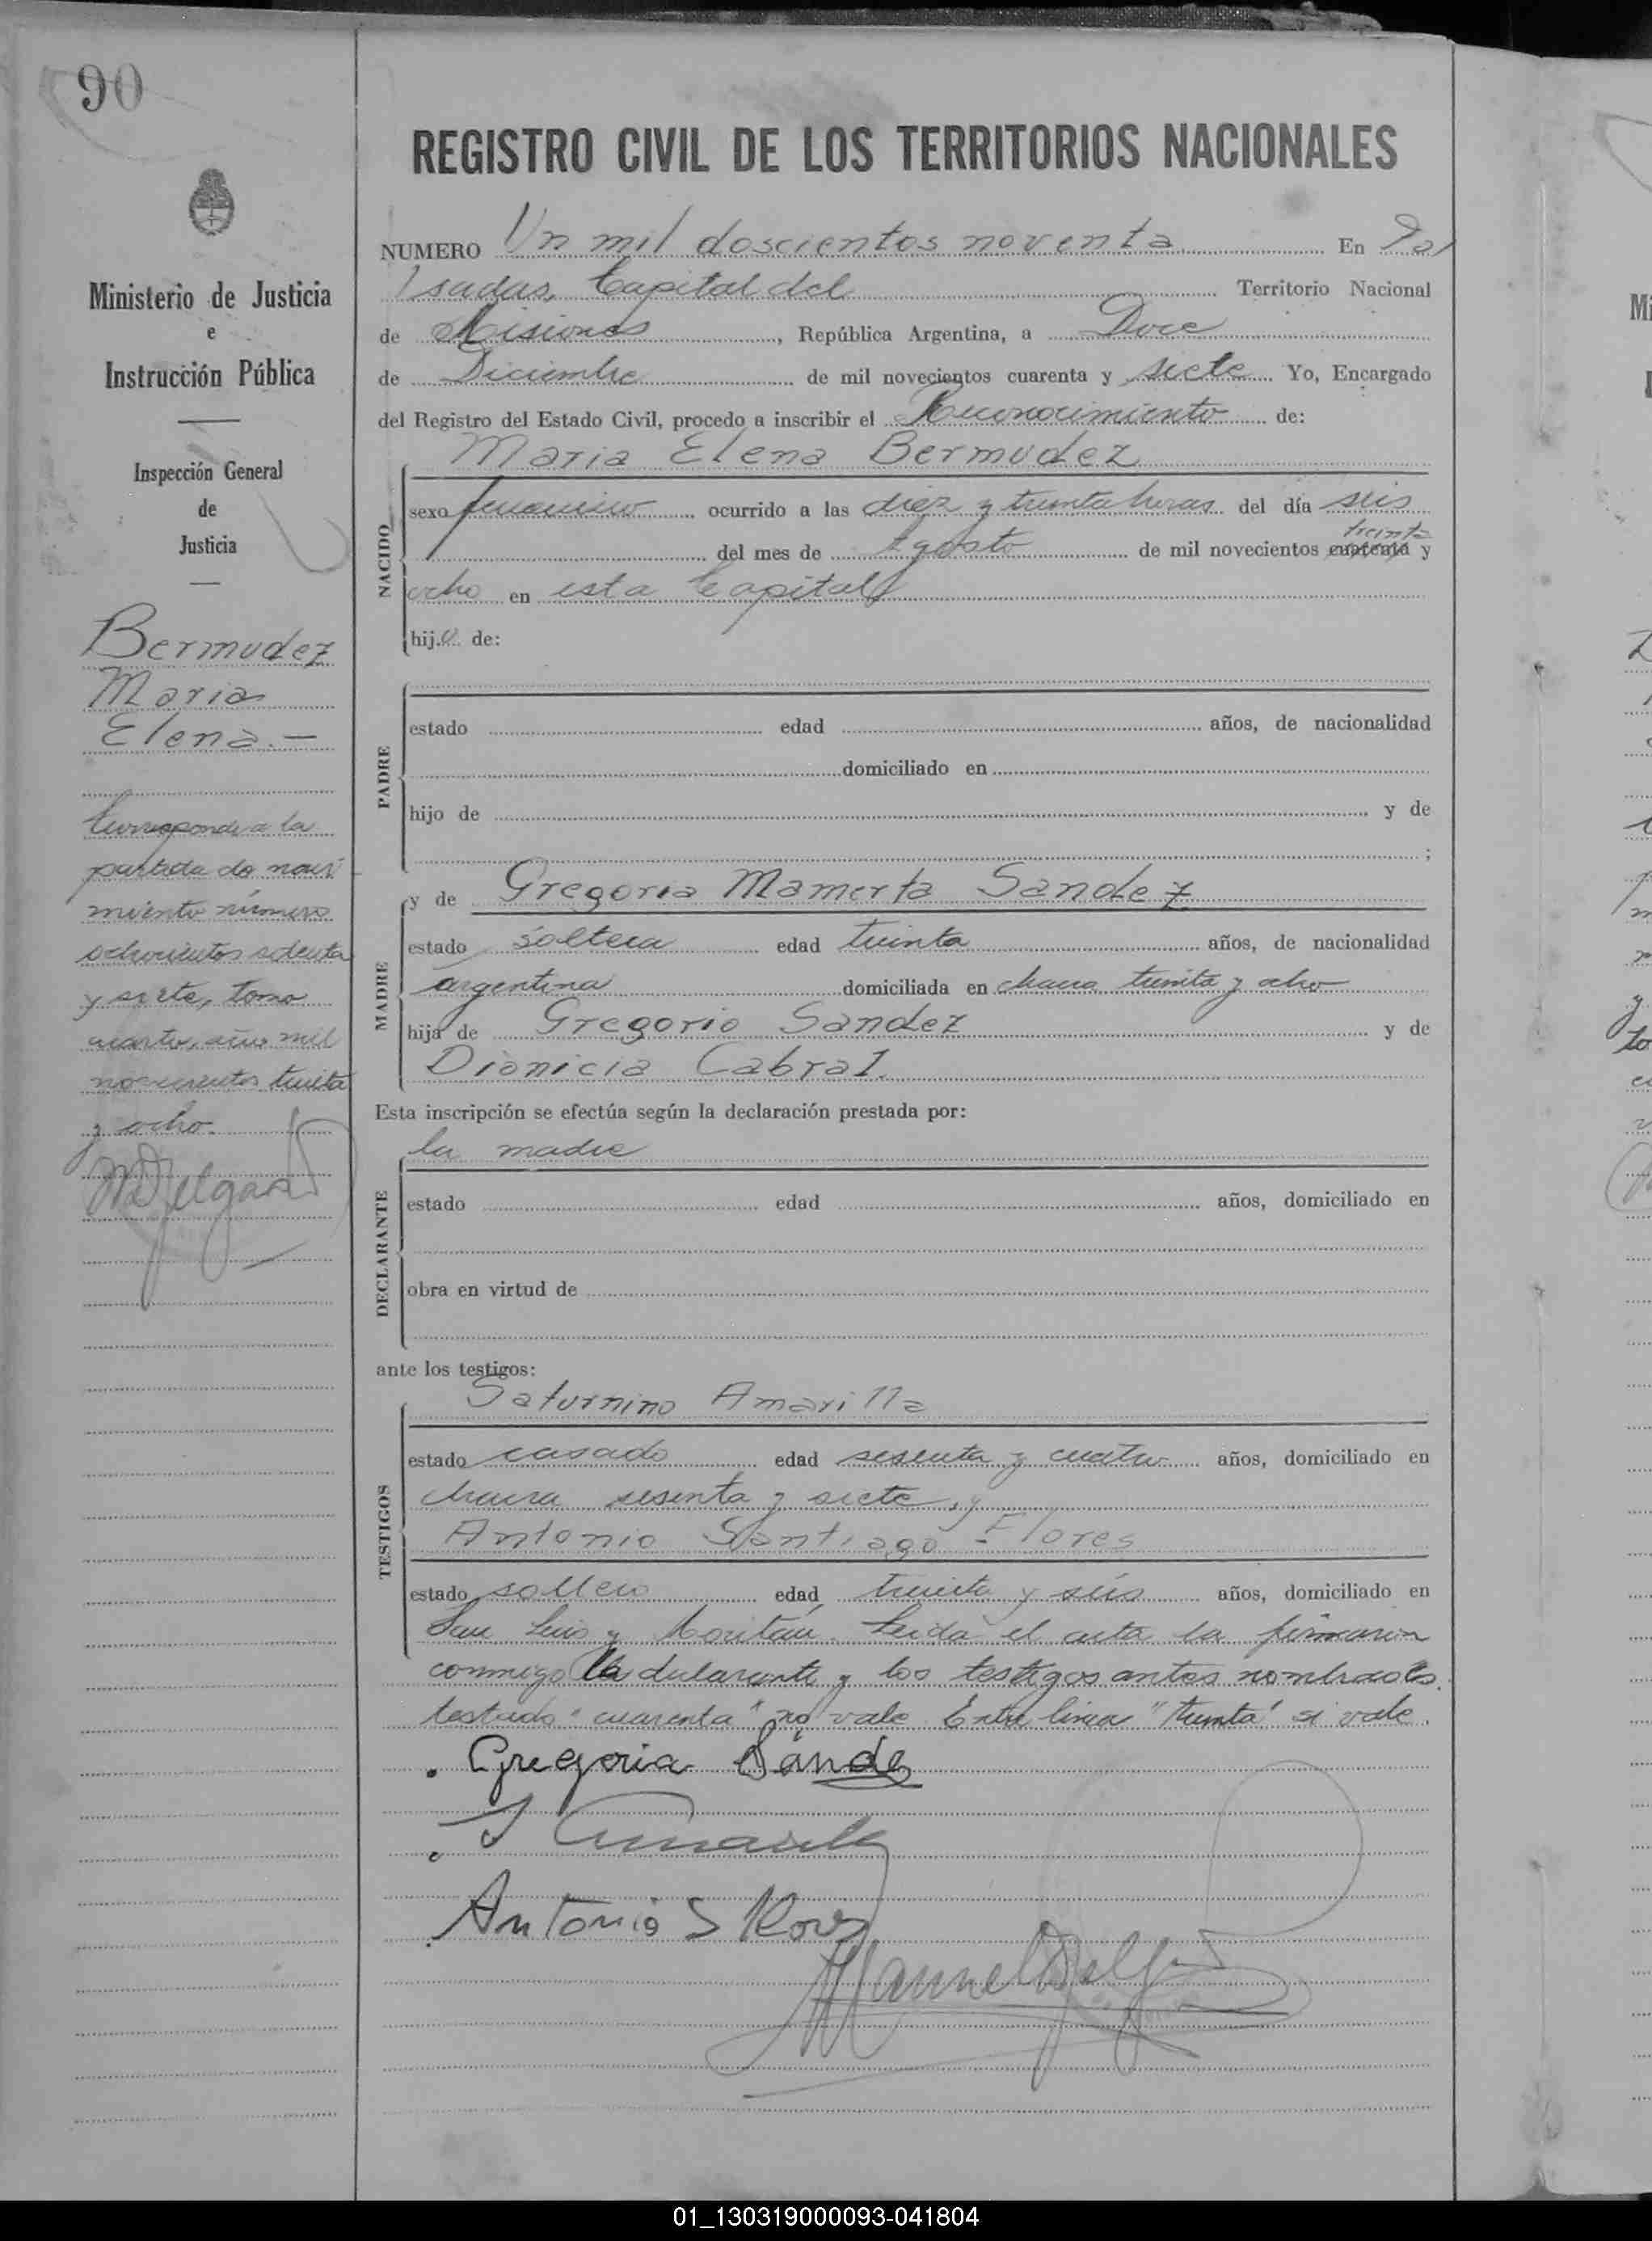 90
Ministerio de Justicia
e
Instrucción Pública
Inspección General
de
Justicia
Bermudez
Maria
Elena.-
Corresponde a la
partida de naci
miento número
ochocientos ochenta
y siete, tomo
cuarto, año mil
novecientos treinta
y ocho.
MDelgado
REGISTRO CIVIL DE LOS TERRITORIOS NACIONALES
NUMERO Un mil doscientos noventa En Po
sadas, Capital del Territorio Nacional
de Misiones, República Argentina, a Doce
de Diciembre de mil novecientos cuarenta y siete Yo, Encargado
del Registro del Estado Civil, procedo a inscribir el Reconocimiento de:
Maria Elena Bermudez
NACIDO
sexo femenino ocurrido a las diez y treinta horas del día seis
treinta
del mes de Agosto de mil novecientos cuarenta y
ocho en esta Capital
hija de:
PADRE
estado edad años, de nacionalidad
domiciliado en
hijo de y de
;
MADRE
y de Gregoria Mamerta Sandez
estado soltera edad treinta años, de nacionalidad
argentina domiciliada en chacra treinta y ocho
hija de Gregorio Sandez y de
Dionicia Cabral.
Esta inscripción se efectúa según la declaración prestada por:
la madre
DECLARANTE
estado edad años, domiciliado en
obra en virtud de
ante los testigos:
Saturnino Amarilla
TESTIGOS
estado casado edad sesenta y cuatro años, domiciliado en
chacra sesenta y siete, y
Antonio Santiago Flores
estado soltero edad treinta y seis años, domiciliado en
San Luis y Leida el acta la firmaron
conmigo la declarante y los testigos antes nombrados.
testado "cuarenta" no vale. Entre linea "treinta" si vale.
Gregoria Sánde
S Amarilla
Antonio S Flores
Manuel Delgado
01_130319000093-041804